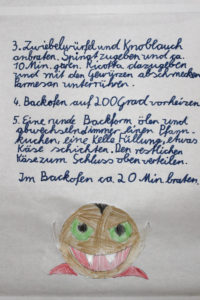 3. Zwiebelwürfel und Knoblauch
anbraten, Spinat zugeben und ca.
10 Min. garen. Ricotta dazugeben
und mit den Gewürzen abschmecken
Parmesan unterrühren.
4. Backofen auf 200 Grad vorheizen
5. Eine runde Backform ölen und
abwechselnd immer einen Pfann-
kuchen, eine Kelle Füllung, etwas
Käse schichten. Den restlichen
Käse zum Schluss oben verteilen.
Im Backofen ca. 20 Min. braten.